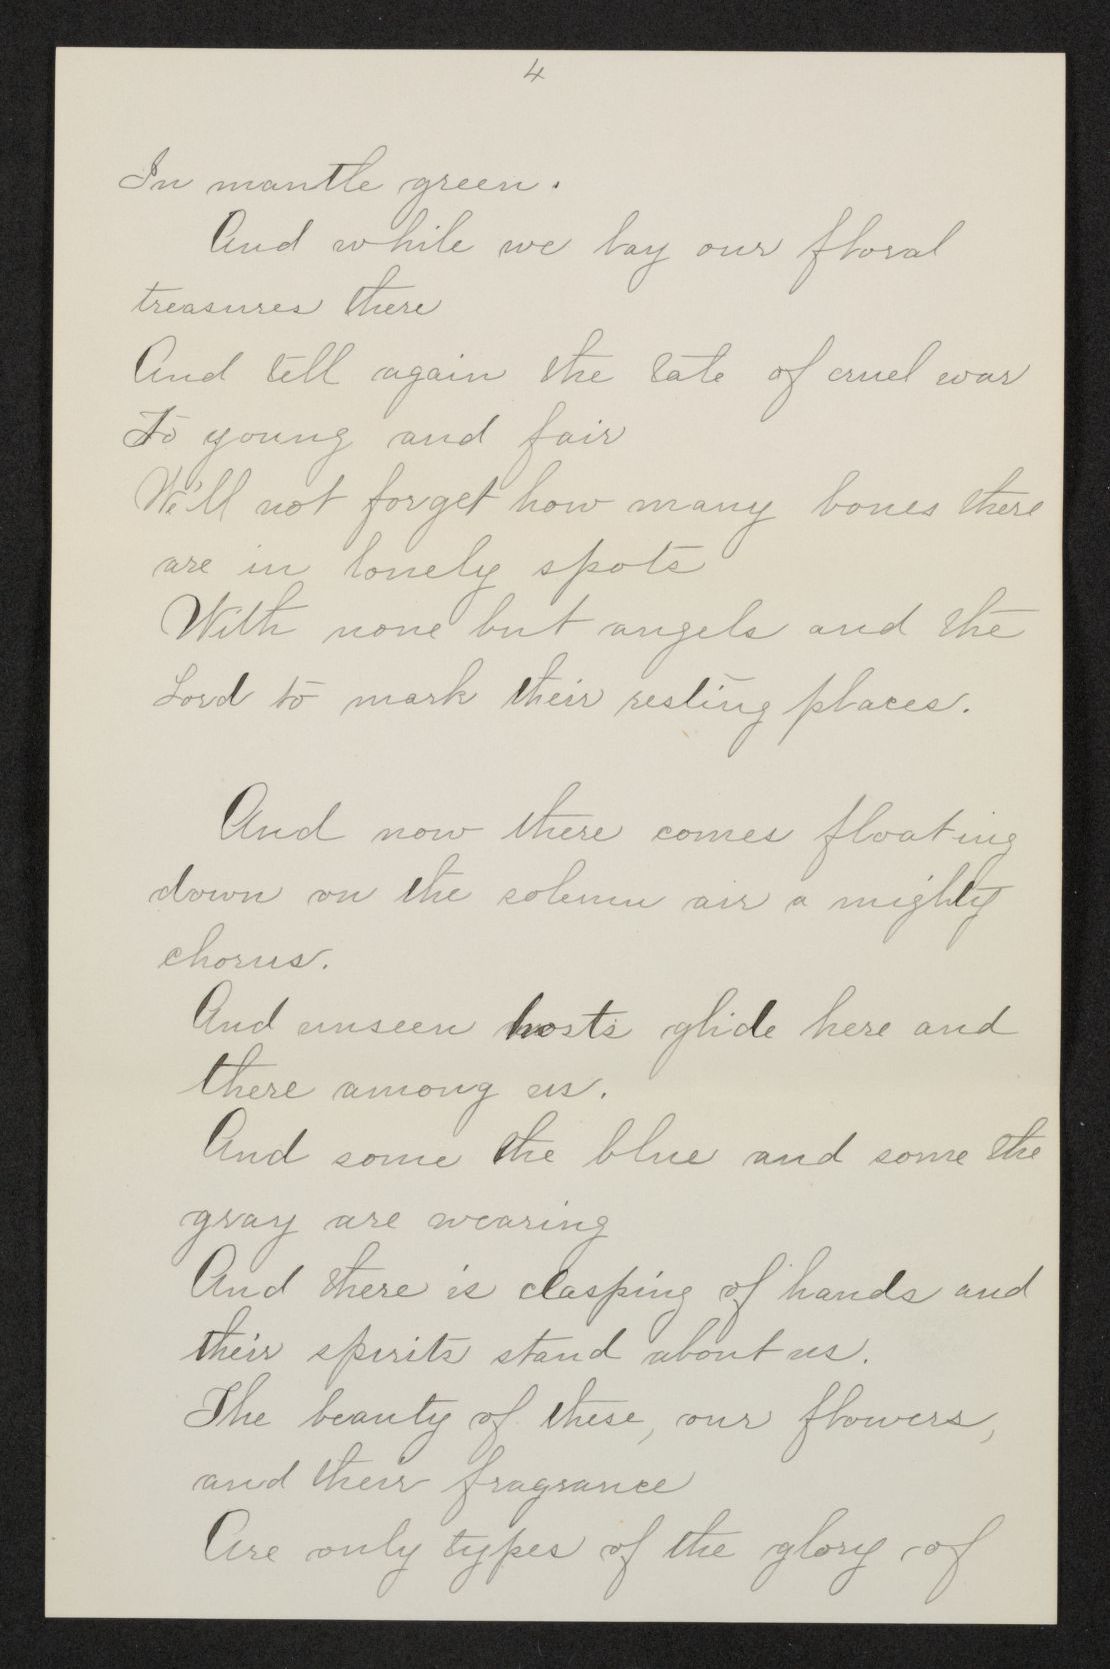 4
In mantle green.
And while we lay our floral
treasures there
And tell again the tale of cruel war
To young and fair
We'll not forget how many bones there
are in lonely spots
With none but angels and the
Lord to mark their resting places.
And now there comes floating
down on the solemn air a mighty
chorus.
And unseen hosts glide here and
there among us.
And some the blue and some the
gray are wearing
And there is clasping of hands and
their spirits stand about us.
The beauty of these, our flowers,
and their fragrance
Are only types of the glory of